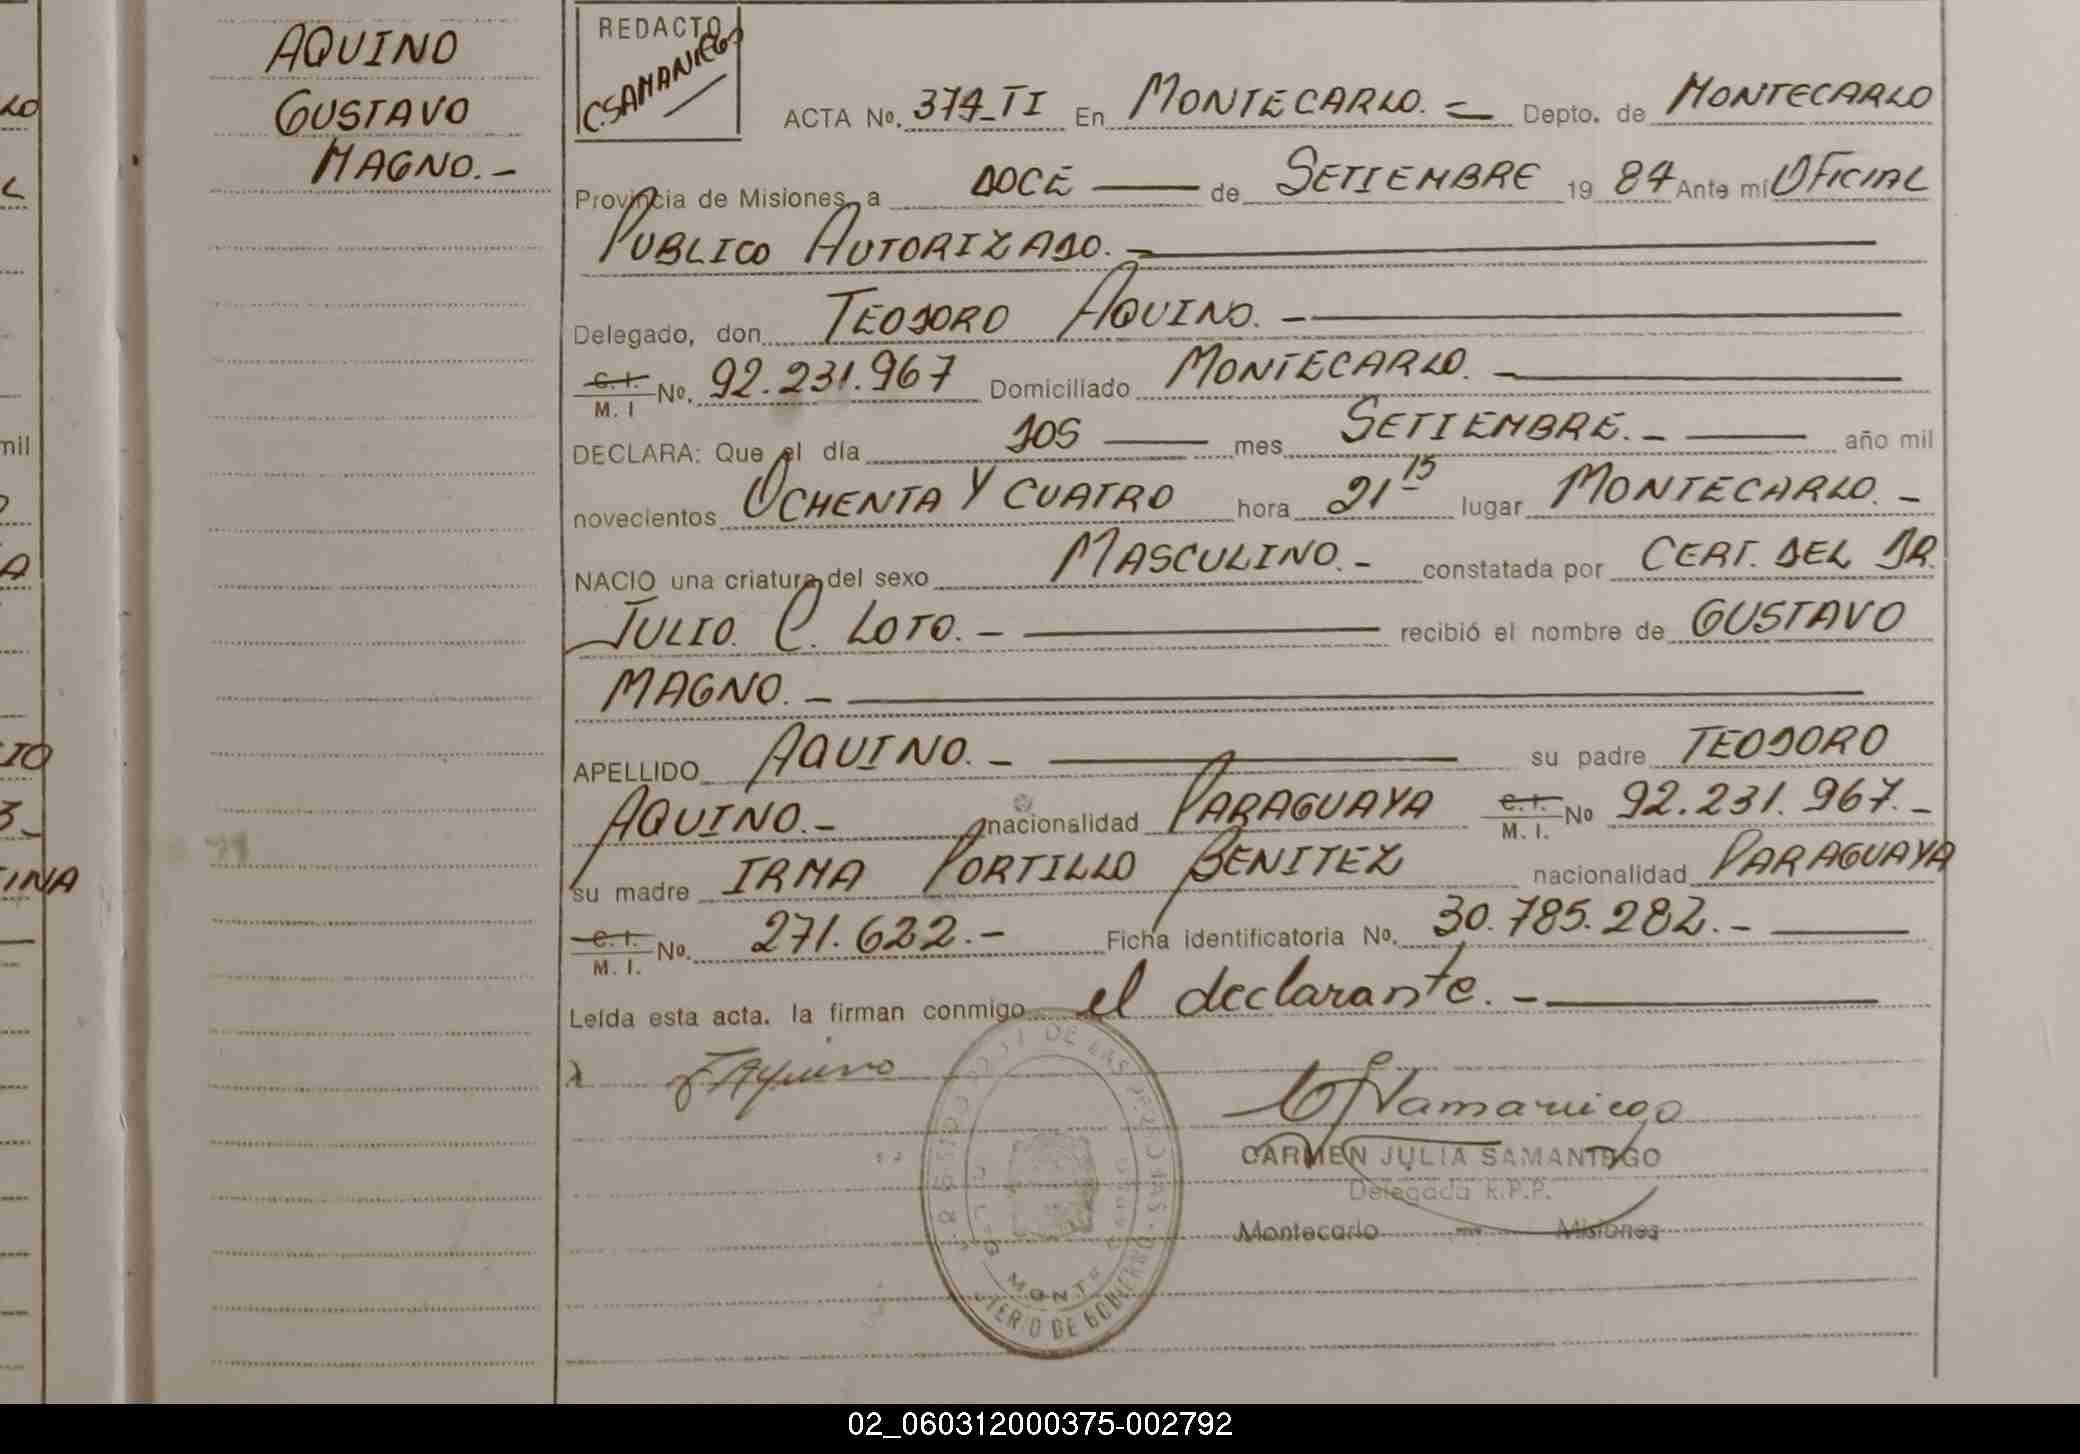 AQUINO
GUSTAVO
MAGNO.-
REDACTO
C.SAMANIEGO
ACTA No. 374-TI En MONTECARLO.- Depto. de MONTECARLO
Provincia de Misiones, a DOCE de SETIEMBRE 1984 Ante mi OFICIAL
PUBLICO AUTORIZADO.-
Delegado, don TEODORO AQUINO.-
C.I. / M.I No. 92.231.967 Domiciliado MONTECARLO.-
DECLARA: Que el día DOS mes SETIEMBRE.- año mil
novecientos OCHENTA Y CUATRO hora 21 15 lugar MONTECARLO.-
NACIO una criatura del sexo MASCULINO.- constatada por CERT. DEL DR.
JULIO. C. LOTO.- recibió el nombre de GUSTAVO
MAGNO.-
APELLIDO AQUINO.- su padre TEODORO
AQUINO.- nacionalidad PARAGUAYA C.I. / M.I. No 92.231.967.-
su madre IRMA PORTILLO BENITEZ nacionalidad PARAGUAYA
C.I. / M.I. No. 271.622.- Ficha identificatoria No. 30.785.282.-
Leída esta acta, la firman conmigo el declarante.-
TAquino
CJSamaniego
CARMEN JULIA SAMANIEGO
Delegada R.P.P.
Montecarlo - Misiones
DE LAS PERSONAS
MONTE
TERIO DE GOBIERNO
02_060312000375-002792